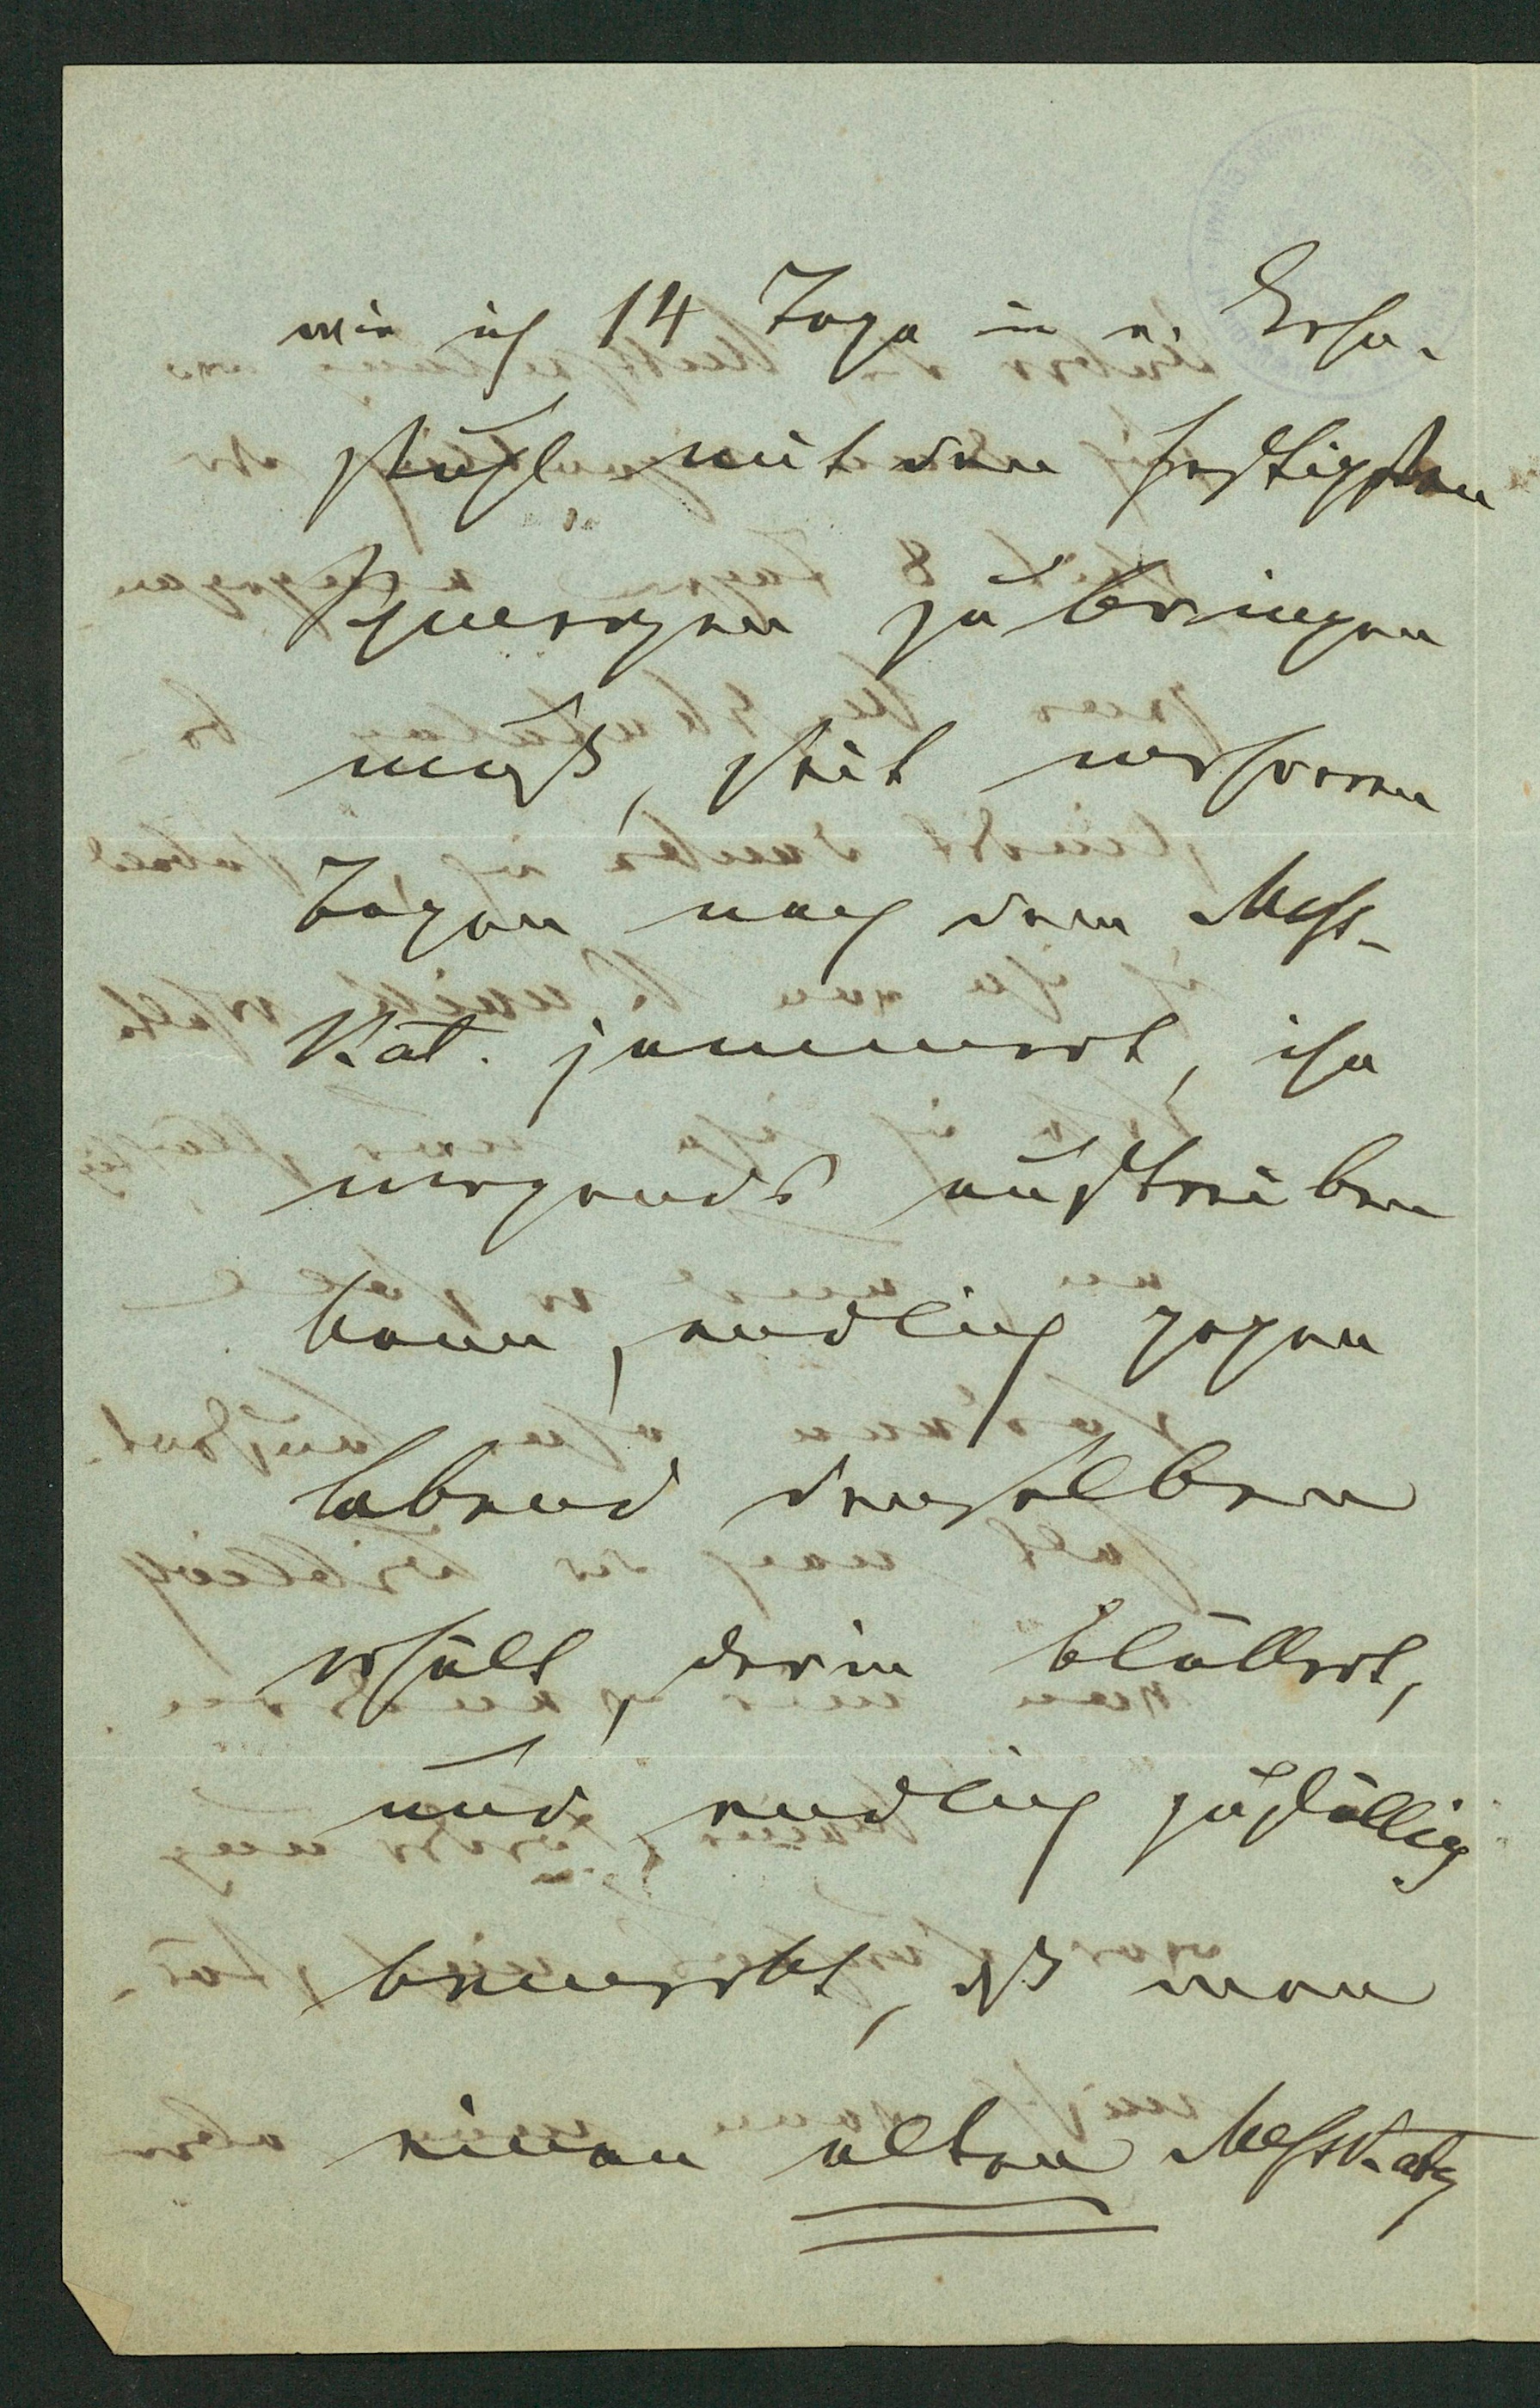 wie ich 14 Tage in e. Lehn-
stuhl mit den heftigsten
Schmerzen zubringen
muß, seit mehreren
Tagen nach dem Mess-
Kat. jammert, ihn
nirgends auftreiben
kann, endlich gegen
Abend denselben
erhält, darin blättert,
und endlich zufällig
bemerkt, dß man
einen alten MessKatg